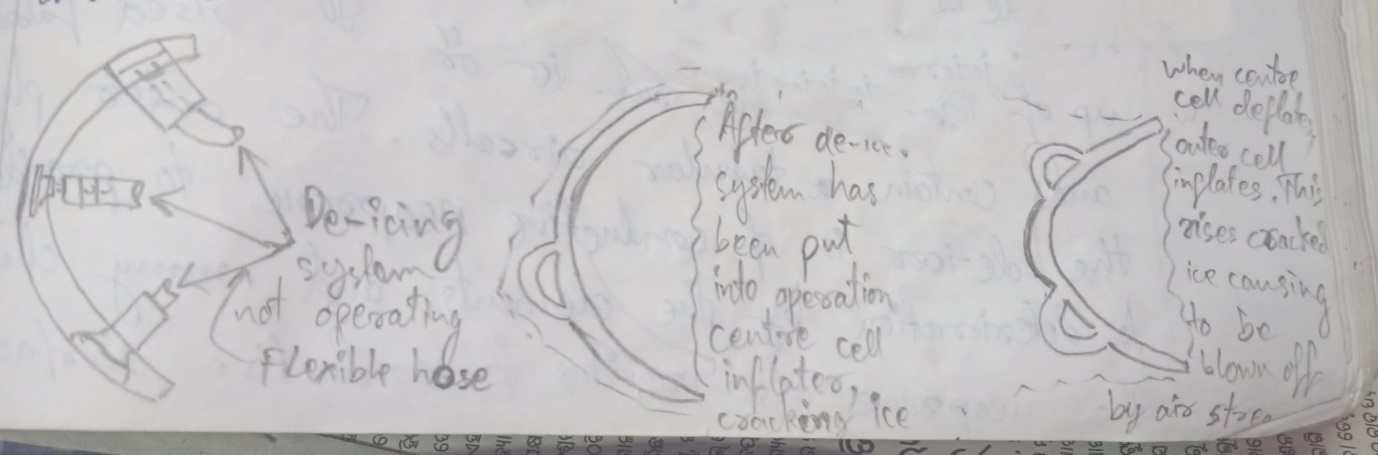 De-icing
system
not operating
Flexible hose
After de-ice.
system has
been put
into operation
centre cell
inflates,
cracking ice
When centre
cell deflates,
outer cell
inflates. This
rises cracked
ice causing
to be
blown off
by air